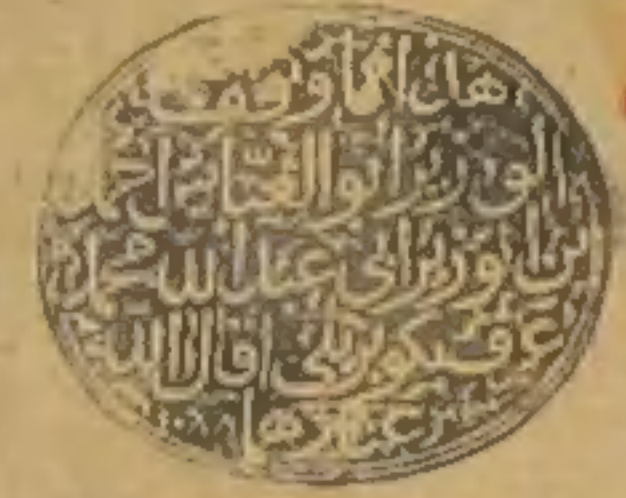 هذا مما وقف
الوزير ابو العباس احمد
ابن الوزير ابى عبد الله محمد
عرف بكوبريلى اقال الله
عثارهما ١٠٨٨